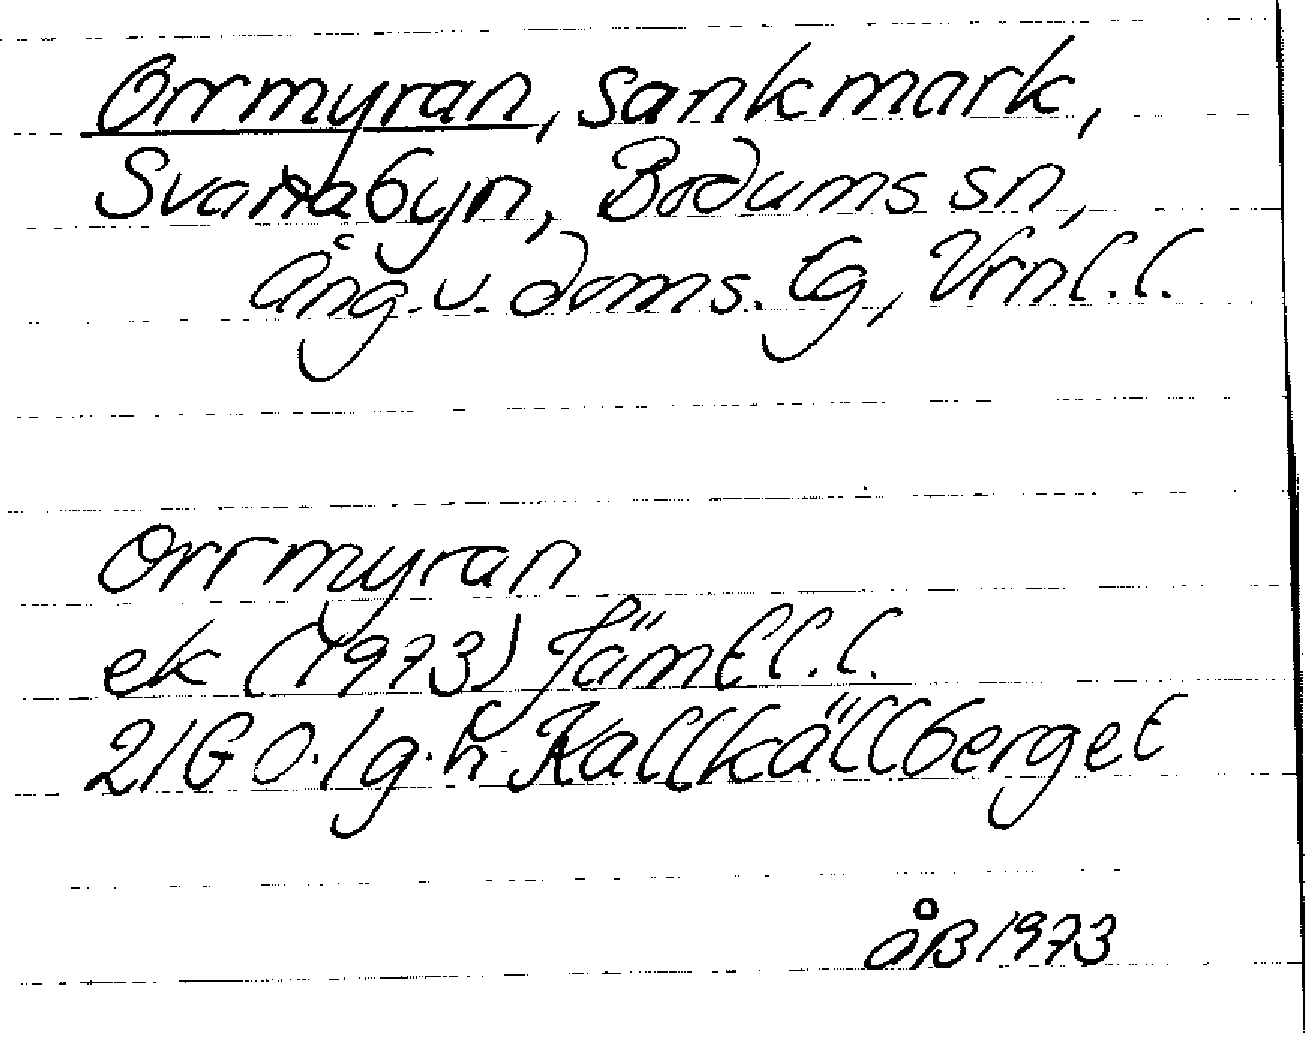 Orrmyran, sankmark,
Svanabyn, Bodums sn,
Ång. v. doms. tg, Vrnl. l.
Orrmyran
ek (1973) Jämtl. l.
21G 0. 1g. h Kallkällberget
ÅB 1973